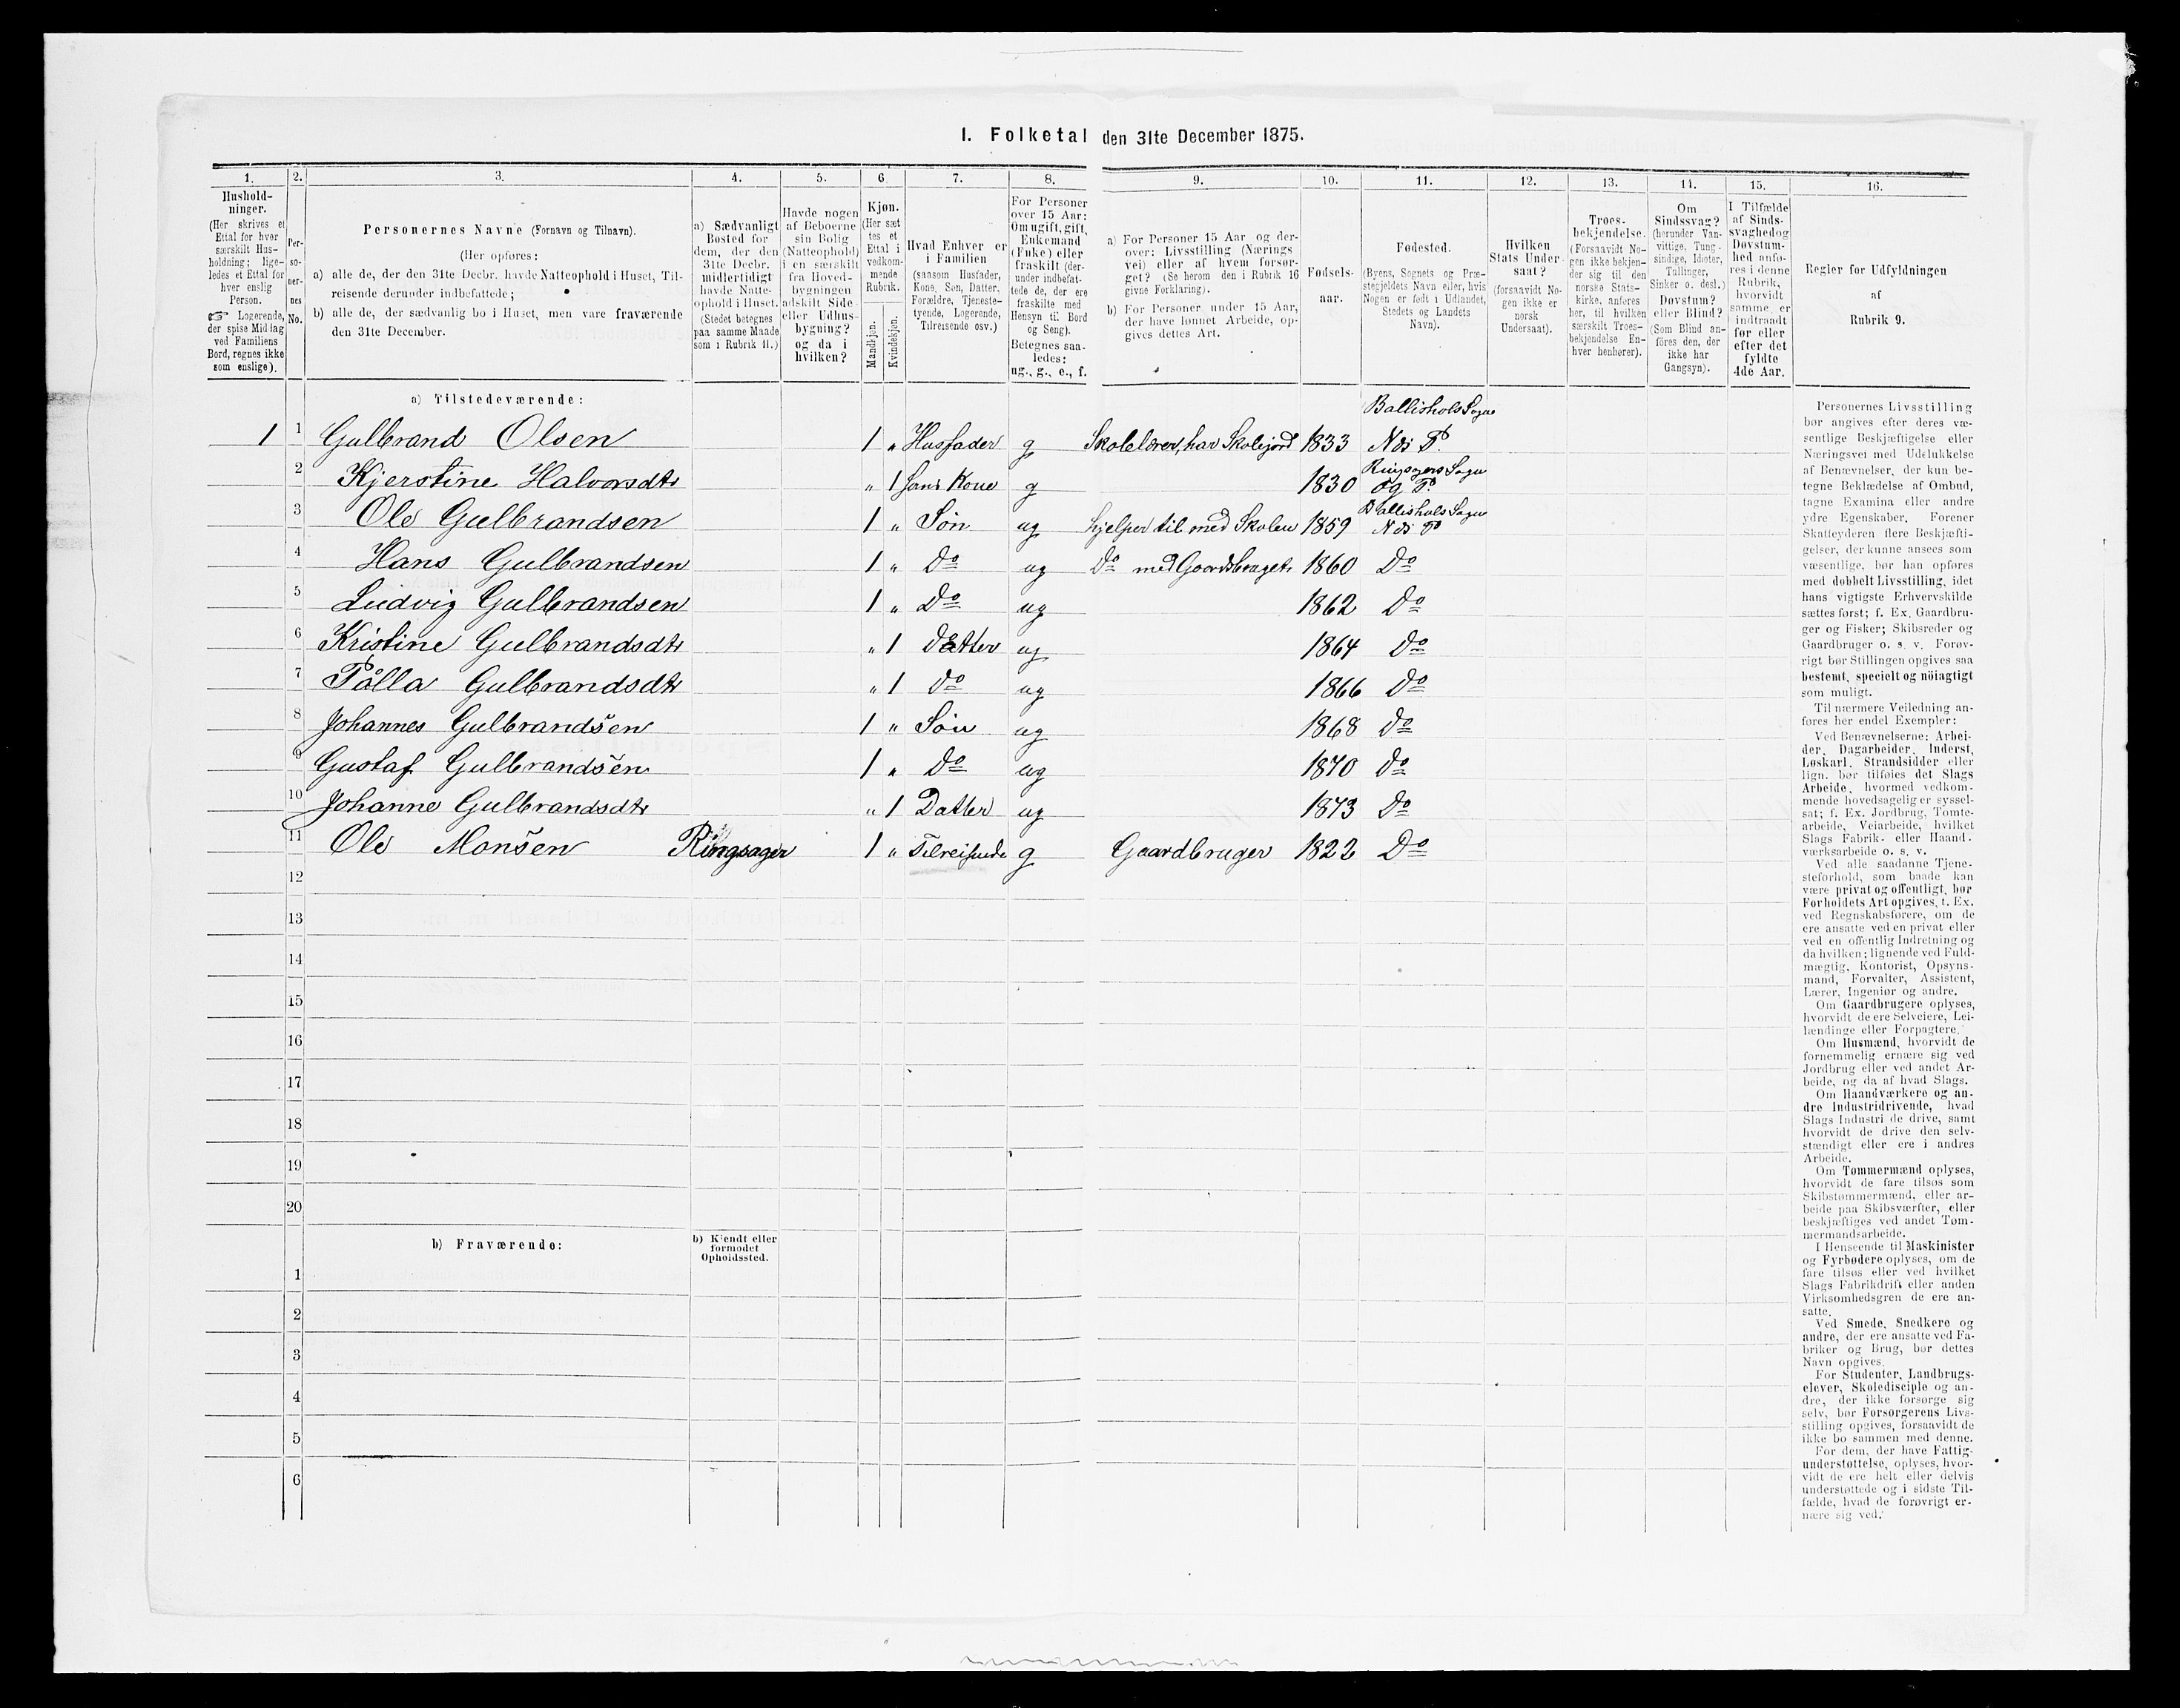 I. Folketal den 31te December 1875.
1. 2. 3. 4. 5. 6. 7. 8. 9. 10. 11. 12. 13. 14. 15. 16.
Hushold-
ninger.
(Her skrives et
Ettal for hver
særskilt Hus-
holdning; lige-
ledes et Ettal for
hver enslig
Person.
☞ Logerende,
der spise Middag
ved Familiens
Bord, regnes ikke
som enslige).
Per-
so-
ner-
nes
No.
Personernes Navne (Fornavn og Tilnavn).
(Her opføres:
a) alle de, der den 31te Decbr. havde Natteophold i Huset, Til-
reisende derunder indbefattede;
b) alle de, der sædvanlig bo i Huset, men vare fraværende
den 31te December.
a) Sædvanligt
Bosted for
dem, der den
31te Decbr.
midlertidigt
havde Natte-
ophold i Huset.
(Stedet betegnes
paa samme Maade
som i Rubrik 11.)
Havde nogen
af Beboerne
sin Bolig
(Natteophold)
i en særskilt
fra Hoved-
bygningen
adskilt Side-
eller Udhus-
bygning?
og da i
hvilken?
Kjøn.
(Her sæt-
tes et
Ettal i
vedkom-
mende
Rubrik.
Mandkjøn.
Kvindekjøn.
Hvad Enhver er
i Familien
(saasom Husfader,
Kone, Søn, Datter,
Forældre, Tjeneste-
tyende, Logerende,
Tilreisende osv.)
For Personer
over 15 Aar:
Om ugift, gift,
Enkemand
(Enke) eller
fraskilt (der-
under indbefat-
tede de, der ere
fraskilte med
Hensyn til Bord
og Seng).
Betegnes saa-
ledes:
ug., g., e., f.
a) For Personer 15 Aar og der-
over: Livsstilling (Nærings-
vei) eller af hvem forsør-
get? (Se herom den i Rubrik 16
givne Forklaring).
b) For Personer under 15 Aar,
der have lønnet Arbeide, op-
gives dettes Art.
Fødsels-
aar.
Fødested.
(Byens, Sognets og Præ-
stegjeldets Navn eller, hvis
Nogen er født i Udlandet,
Stedets og Landets
Navn).
Hvilken
Stats Under-
saat?
(forsaavidt No-
gen ikke er
norsk
Undersaat).
Troes-
bekjendelse.
(Forsaavidt No-
gen ikke bekjen-
der sig til den
norske Stats-
kirke, anføres
her, til hvilken
særskilt Troes-
bekjendelse En-
hver henhører).
Om
Sindssvag?
(herunder Van-
vittige, Tung-
sindige, Idioter,
Tullinger,
Sinker o. desl.)
Døvstum?
eller Blind?
(Som Blind an-
føres den, der
ikke har
Gangsyn).
I Tilfælde
af Sinds-
svaghed og
Døvstum-
hed anfø-
res i denne
Rubrik,
hvorvidt
samme er
indtraadt
før eller
efter det
fyldte
4de Aar.
Regler for Udfyldningen
af
Rubrik 9.
a) Tilstedeværende:
Ballishols Sogn
1 1 Gulbrand Olsen 1 „ Husfader g Skolelærer, har Skolejord 1833 Næs P.
Ringsagers Sogn
2 Kjerstine Halvorsdtr „ 1 hans Kone g 1830 og P.
Ballishols Sogn
3 Ole Gulbrandsen 1 „ Søn ug hjelper til med Skolen 1859 Næs P
4 Hans Gulbrandsen 1 „ Do ug Do med Gaardsbruget 1860 Do
5 Ludvig Gulbrandsen 1 „ Do ug 1862 Do
6 Kristine Gulbrandsdtr „ 1 Datter ug 1864 Do
7 Pålla Gulbrandsdtr „ 1 Do ug 1866 Do
8 Johannes Gulbrandsen 1 „ Søn ug 1868 Do
9 Gustaf Gulbrandsen 1 „ Do ug 1870 Do
10 Johanne Gulbrandsdtr „ 1 Datter ug 1873 Do
11 Ole Monsen Ringsager 1 „ Tilreisende g Gaardbruger 1822 Do
12
13
14
15
16
17
18
19
20
b) Fraværende:
b) Kjendt eller
formodet
Opholdssted.
1
2
3
4
5
6
Personernes Livsstilling
bør angives efter deres væ-
sentlige Beskjæftigelse eller
Næringsvei med Udelukkelse
af Benævnelser, der kun be-
tegne Beklædelse af Ombud,
tagne Examina eller andre
ydre Egenskaber. Forener
Skatteyderen flere Beskjæfti-
gelser, der kunne ansees som
væsentlige, bør han opføres
med dobbelt Livsstilling, idet
hans vigtigste Erhvervskilde
sættes først; f. Ex. Gaardbru-
ger og Fisker; Skibsreder og
Gaardbruger o. s. v. Forøv-
rigt bør Stillingen opgives saa
bestemt, specielt og nöiagtigt
som muligt.
Til nærmere Veiledning an-
føres her endel Exempler:
Ved Benævnelserne: Arbei-
der, Dagarbeider, Inderst,
Løskarl, Strandsidder eller
lign. bør tilføies det Slags
Arbeide, hvormed vedkom-
mende hovedsagelig er syssel-
sat; f. Ex. Jordbrug, Tomte-
arbeide, Veiarbeide, hvilket
Slags Fabrik- eller Haand-
værksarbeide o. s. v.
Ved alle saadanne Tjene-
steforhold, som baade kan
være privat og offentligt, bør
Forholdets Art opgives, f. Ex.
ved Regnskabsførere, om de
ere ansatte ved en privat eller
ved en offentlig Indretning og
da hvilken; lignende ved Fuld-
mægtig, Kontorist, Opsyns-
mand, Forvalter, Assistent,
Lærer, Ingeniør og andre.
Om Gaardbrugere oplyses,
hvorvidt de ere Selveiere, Lei-
lændinge eller Forpagtere.
Om Husmænd, hvorvidt de
fornemmelig ernære sig ved
Jordbrug eller ved andet Ar-
beide, og da af hvad Slags.
Om Haandværkere og an-
dre Industridrivende, hvad
Slags Industri de drive, samt
hvorvidt de drive den selv-
stændigt eller ere i andres
Arbeide.
Om Tømmermænd oplyses,
hvorvidt de fare tilsøs som
Skibstømmermænd, eller ar-
beide paa Skibsværfter, eller
beskjæftiges ved andet Tøm-
mermandsarbeide.
I Henseende til Maskinister
og Fyrbødere oplyses, om de
fare tilsøs eller ved hvilket
Slags Fabrikdrift eller anden
Virksomhedsgren de ere an-
satte.
Ved Smede, Snedkere og
andre, der ere ansatte ved Fa-
briker og Brug, bør dettes
Navn opgives.
For Studenter, Landbrugs-
elever, Skoledisciple og an-
dre, der ikke forsørge sig
selv, bør Forsørgerens Livs-
stilling opgives, forsaavidt de
ikke bo sammen med denne.
For dem, der have Fattig-
understøttelse, oplyses, hvor-
vidt de ere helt eller delvis
understøttede og i sidste Til-
fælde, hvad de forøvrigt er-
nære sig ved.